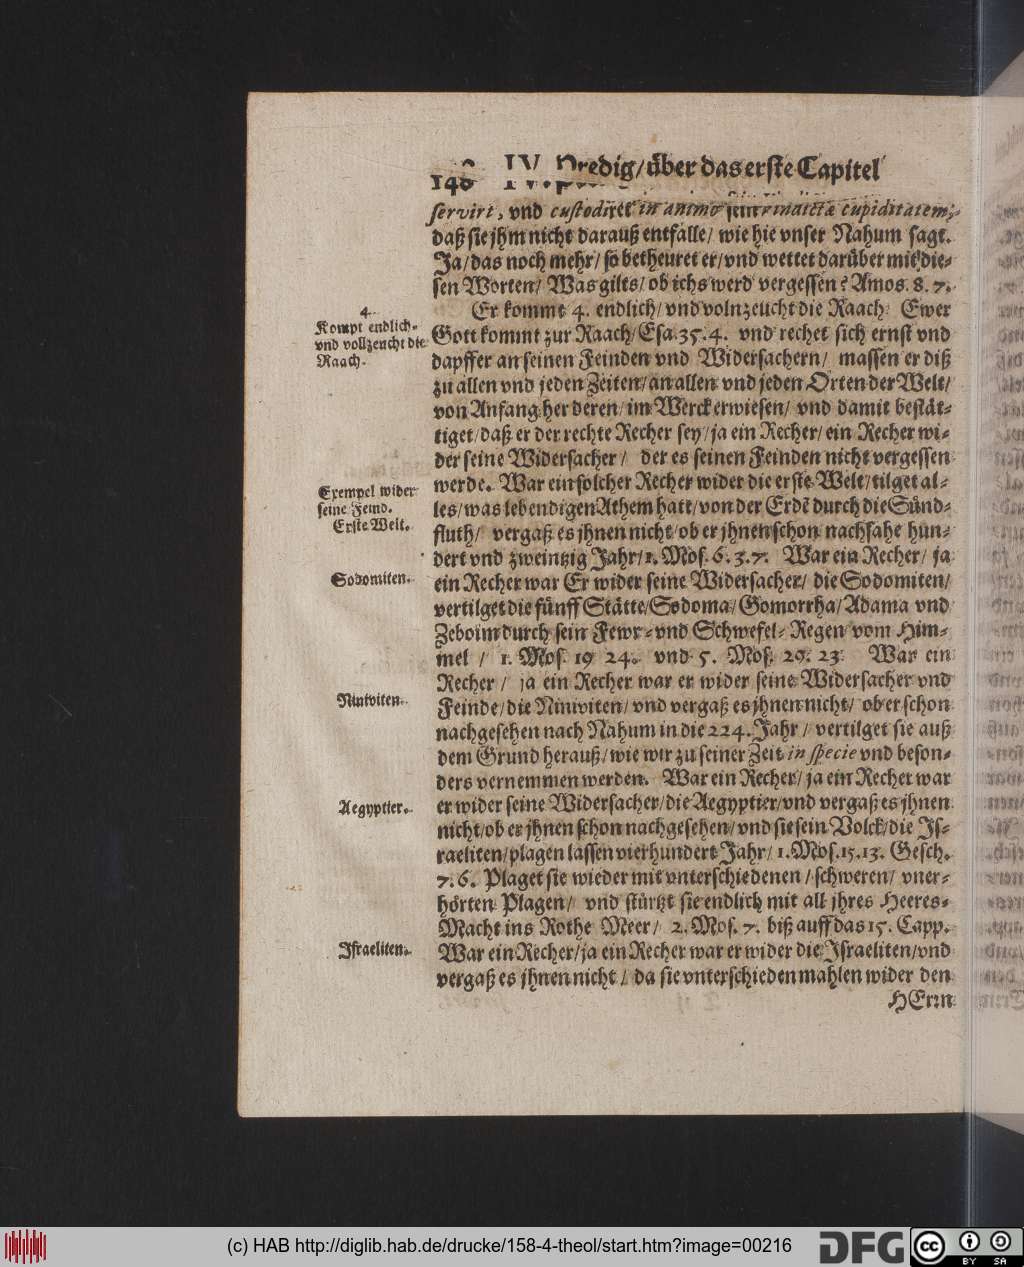 148 IV. Predig/ über das erste Capitel
servirt, vnd custodiret in animo suo vindictæ cupiditatem,
daß sie jhm nicht darauß entfalle/ wie hie vnser Nahum sagt.
Ja/ das noch mehr/ so betheuret er/ vnd wettet darüber mit die-
sen Worten/ Was gilts/ ob ichs werd vergessen? Amos. 8. 7.
4.
Kompt endlich-
vnd vollzeucht die
Raach.
Er kommt 4. endlich/ vnd volnzeucht die Raach: Ewer
Gott kommt zur Raach/ Esa. 35. 4. vnd rechet sich ernst vnd
dapffer an seinen Feinden vnd Widersachern/ massen er diß
zu allen vnd jeden Zeiten/ an allen vnd jeden Orten der Welt/
von Anfang her deren/ im Werck erwiesen/ vnd damit bestät-
tiget/ daß er der rechte Recher sey/ ja ein Recher/ ein Recher wi-
der seine Widersacher/ der es seinen Feinden nicht vergessen
Exempel wider
seine Feind.
Erste Welt.
werde. War ein solcher Recher wider die erste Welt/ tilget al-
les/ was lebendigen Athem hatt/ von der Erdē durch die Sünd-
fluth/ vergaß es jhnen nicht/ ob er jhnen schon nachsahe hun-
dert vnd zweintzig Jahr/ 1. Mos. 6. 3. 7. War ein Recher/ ja
Sodomiten.
ein Recher war Er wider seine Widersacher/ die Sodomiten/
vertilget die fünff Stätte/ Sodoma/ Gomorrha/ Adama vnd
Zeboim durch sein Fewr- vnd Schwefel-Regen vom Him-
mel / 1. Mos. 19 24. vnd 5. Mos. 29. 23. War ein
Recher / ja ein Recher war er wider seine Widersacher vnd
Niniviten.
Feinde/ die Niniviten/ vnd vergaß es jhnen nicht/ ob er schon
nachgesehen nach Nahum in die 224. Jahr / vertilget sie auß
dem Grund herauß/ wie wir zu seiner Zeit in specie vnd beson-
ders vernemmen werden. War ein Recher/ ja ein Recher war
Aegyptier.
er wider seine Widersacher/ die Aegyptier/ vnd vergaß es jhnen
nicht/ ob er jhnen schon nachgesehen/ vnd sie sein Volck/ die Js-
raeliten/ plagen lassen vierhundert Jahr/ 1. Mos. 15. 13. Gesch.
7. 6. Plaget sie wieder mit vnterschiedenen / schweren/ vner-
hörten Plagen/ vnd stürtzt sie endlich mit all jhres Heeres-
Macht ins Rothe Meer/ 2. Mos. 7. biß auff das 15. Capp.
Jsraeliten.
War ein Recher/ ja ein Recher war er wider die Jsraeliten/ vnd
vergaß es jhnen nicht / da sie vnterschieden mahlen wider den
HErrn
(c) HAB http://diglib.hab.de/drucke/158-4-theol/start.htm?image=00216
DFG
cc BY SA